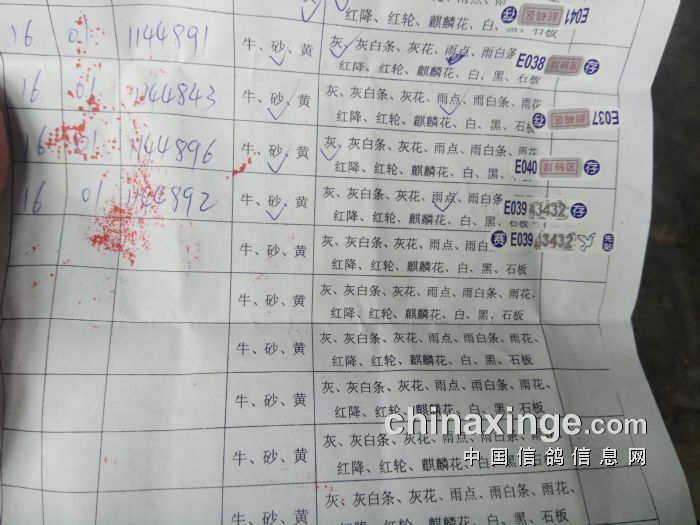 红降、红轮、麒麟花、白、黑、石板 存 刮码区 E041
16 01 1144891 牛、砂、黄 灰、灰白条、灰花、雨点、雨白条 E038 刮码区 存
红降、红轮、麒麟花、白、黑、石板
16 01 1144843 牛、砂、黄 灰、灰白条、灰花、雨点、雨白条、雨花
红降、红轮、麒麟花、白、黑、石板 存 刮码区 E037
16 01 1144896 牛、砂、黄 灰、灰白条、灰花、雨点、雨白条、雨花
红降、红轮、麒麟花、白、黑、石板 E040 刮码区 存
16 01 1144892 牛、砂、黄 灰、灰白条、灰花、雨点、雨白条
红降、红轮、麒麟花、白、黑 E039 43432 存
牛、砂、黄 灰、灰白条、灰花、雨点、雨 赛 E039 43432
红降、红轮、麒麟花、白、黑、石板
牛、砂、黄 灰、灰白条、灰花、雨点、雨白条、雨花、
红降、红轮、麒麟花、白、黑、石板
牛、砂、黄 灰、灰白条、灰花、雨点、雨白条、雨花、
红降、红轮、麒麟花、白、黑、石板
牛、砂、黄 灰、灰白条、灰花、雨点、雨白条、雨花、
红降、红轮、麒麟花、白、黑、石板
牛、砂、黄 灰、灰白条、灰花、雨点、雨白条、雨花、
红降、红轮、麒麟花、白、黑、石板
牛、砂、黄 灰、灰白条、灰花、雨点、雨白条、雨花、
红降、红轮、麒麟花、白、黑、石板
chinaxinge.com
中国信鸽信息网